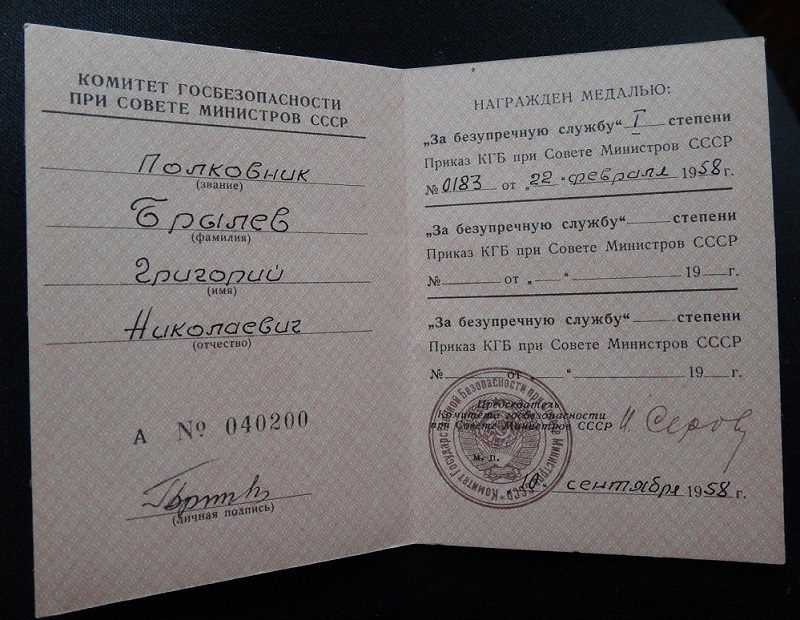 КОМИТЕТ ГОСБЕЗОПАСНОСТИ
ПРИ СОВЕТЕ МИНИСТРОВ СССР
Полковник
(звание)
Брылев
(фамилия)
Григорий
(имя)
Николаевич
(отчество)
А № 040200
(личная подпись)
НАГРАЖДЕН МЕДАЛЬЮ:
„За безупречную службу“ I степени
Приказ КГБ при Совете Министров СССР
№ 0183 от „22“ февраля 1958 г.
„За безупречную службу“ степени
Приказ КГБ при Совете Министров СССР
№ от „ “ 19 г.
„За безупречную службу“ степени
Приказ КГБ при Совете Министров СССР
№ от „ “ 19 г.
Председатель
Комитета госбезопасности
при Совете Министров СССР И. Серов
м. п.
сентября 1958 г.